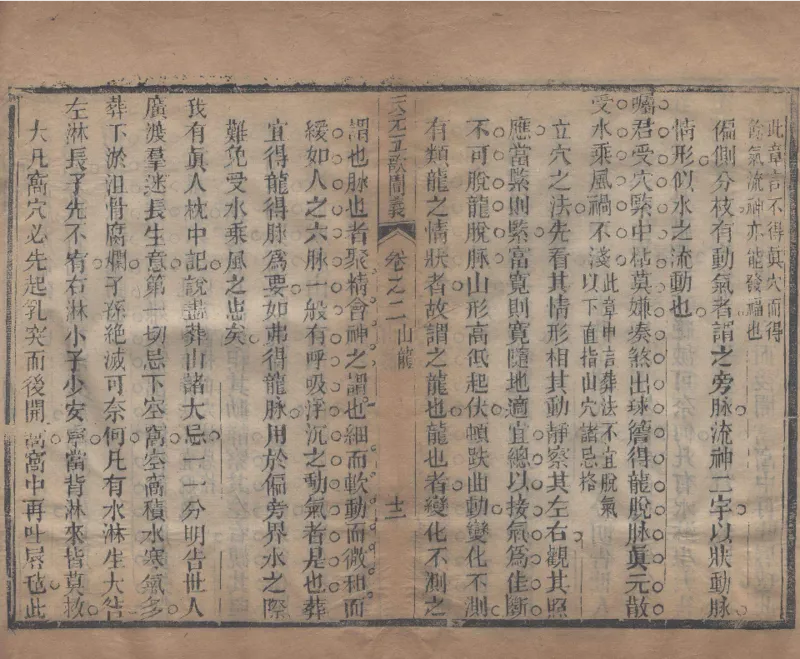 此章言不得眞穴而得
餘氣流神亦能發福也
偏側分枝有動氣者謂之旁脉流神二字以狀動脉
情形似水之流動也
囑君受穴緊中枯莫嫌奏煞出球簷得龍脫脉眞元散
受水乘風禍不淺此章申言葬法不宜脫氣
以下直指山穴諸忌格
立穴之法先看其情形相其動靜察其左右觀其照
應當緊則緊當寬則寬隨地適宜總以接氣爲佳斷
不可脫龍脫脉山形高低起伏頓跌曲動變化不測
有類龍之情狀者故謂之龍也龍也者變化不測之
天元五歌闡義 卷之二 山龍 十二
謂也脉也者聚精會神之謂也細而軟動而微和而
緩如人之六脉一般有呼吸浮沉之動氣者是也葬
宜得龍得脉爲要如弗得龍脉用於偏旁界水之際
難免受水乘風之患矣
我有眞人枕中記說盡葬山諸大忌一一分明告世人
廣渡羣迷長生意第一切忌下空窩空窩積水寒氣多
葬下淤沮骨腐爛子孫絶滅可奈何凡有水淋生大咎
左淋長子先不宥右淋小子少安寧當背淋來皆莫救
大凡窩穴必先起乳突而後開窩窩中再吐唇毡此